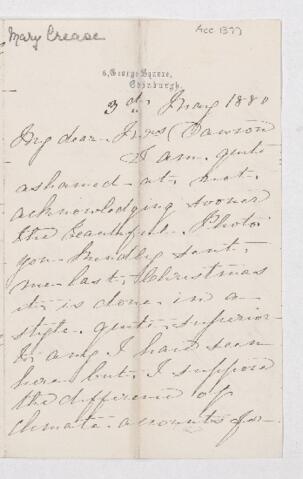 Mary Crease
Acc 1377
6, George Square,
Edinburgh.
3rd May 1880
My dear Mrs Dawson
I am quite
ashamed at not
acknowledging sooner
the beautiful Photo
you kindly sent
me last Christmas
it is done in a
style quite superior
to any I have seen
here but I suppose
the difference of
climate accounts for